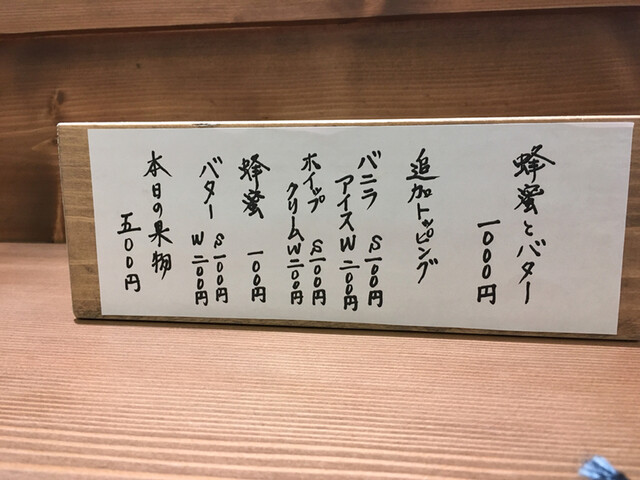 蜂蜜とバター
一000円
追加トッピング
バニラ
アイス
S一00円
W二00円
ホイップ
クリーム
S一00円
W二00円
蜂蜜
一00円
バター
S一00円
W二00円
本日の果物
五00円